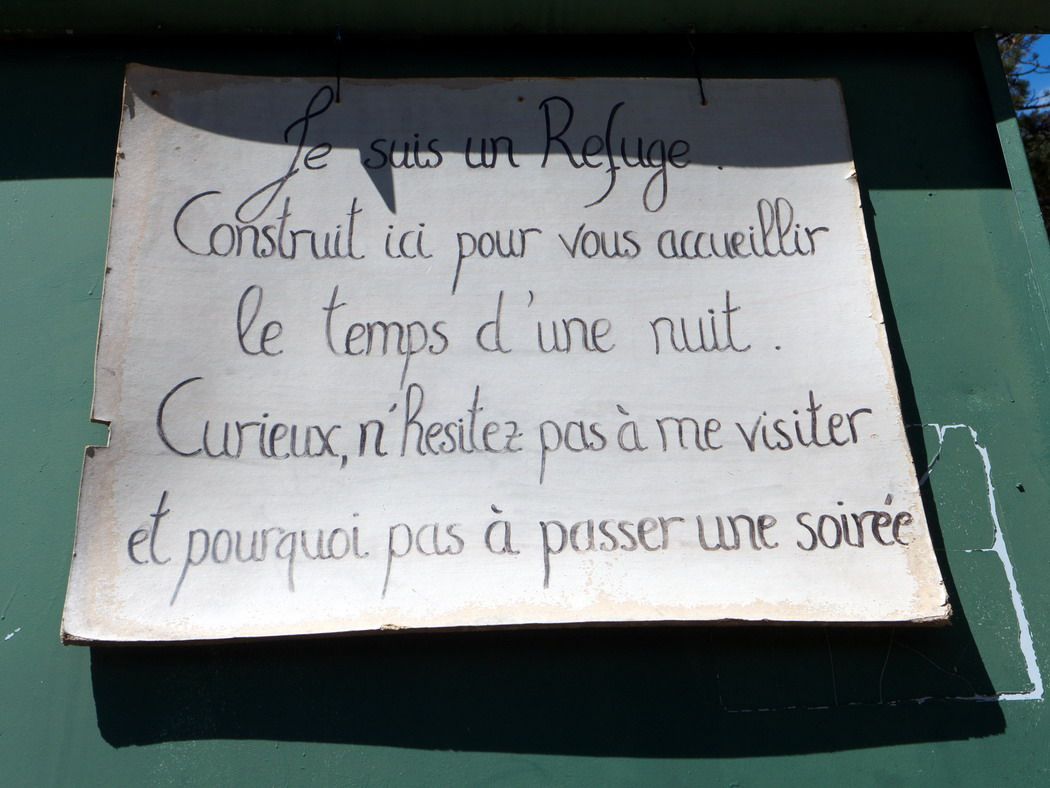 Je suis un Refuge.
Construit ici pour vous accueillir
le temps d'une nuit.
Curieux, n'hesitez pas à me visiter
et pourquoi pas à passer une soirée